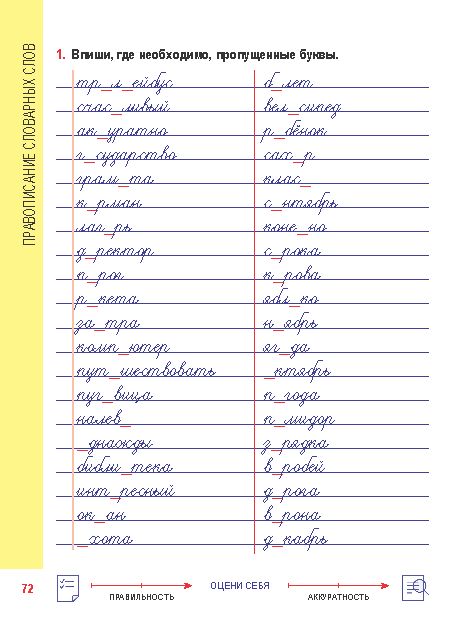 ПРАВОПИСАНИЕ СЛОВАРНЫХ СЛОВ
1. Впиши, где необходимо, пропущенные буквы.
тр_л_ейбус б_лет
счас_ливый вел_сипед
ак_уратно р_бёнок
г_сударство сах_р
грам_та клас_
к_рман с_нтябрь
лаг_рь коне_но
д_ректор с_рока
п_рог к_рова
р_кета ябл_ко
за_тра н_ябрь
комп_ютер яг_да
пут_шествовать _ктябрь
пуг_вица п_года
налев_ п_мидор
_днажды з_рядка
библи_тека в_робей
инт_ресный д_рога
ок_ан в_рона
_хота д_кабрь
72 ПРАВИЛЬНОСТЬ ОЦЕНИ СЕБЯ АККУРАТНОСТЬ